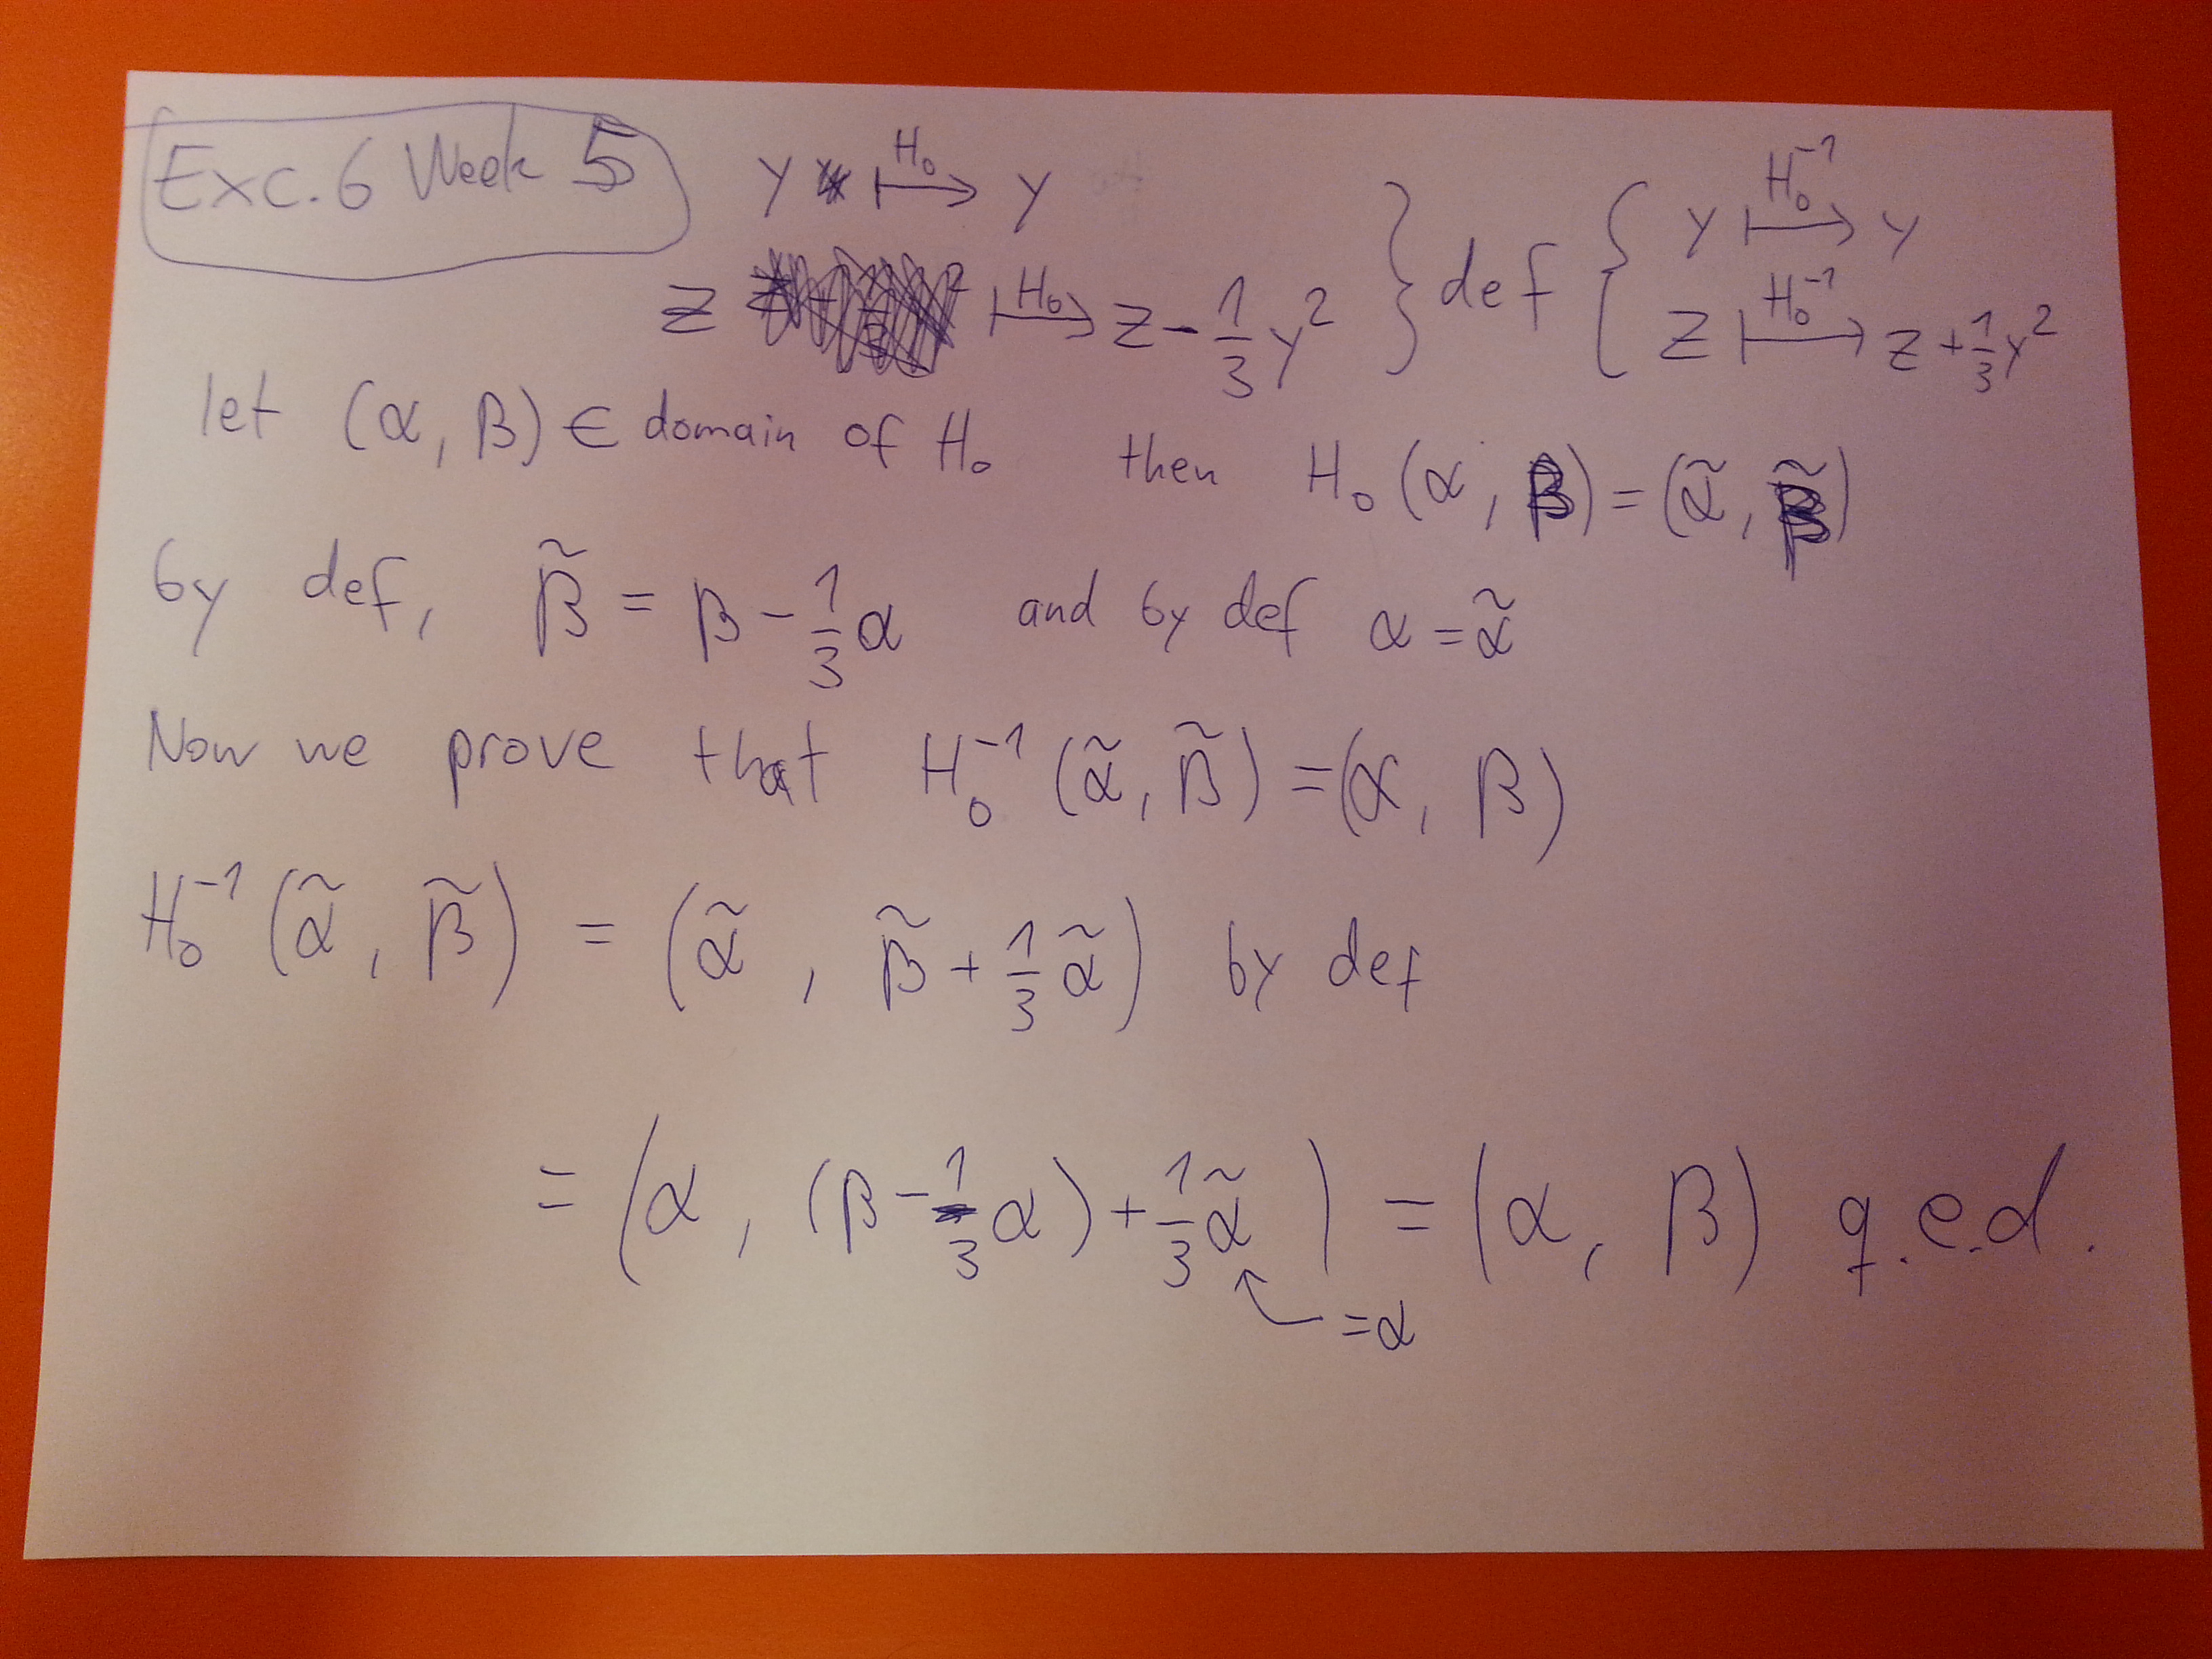 Exc. 6 Week 5
y ⟼ y (H₀) } def { y ⟼ y (H₀⁻¹)
z ⟼ z - 1/3 y² (H₀) } def { z ⟼ z + 1/3 y² (H₀⁻¹)
let (α, β) ∈ domain of H₀ then H₀(α, β) = (α̃, β̃)
by def, β̃ = β - 1/3 α and by def α = α̃
Now we prove that H₀⁻¹(α̃, β̃) = (α, β)
H₀⁻¹(α̃, β̃) = (α̃, β̃ + 1/3 α̃) by def
= (α, (β - 1/3 α) + 1/3 α̃) = (α, β) q.e.d.
= α